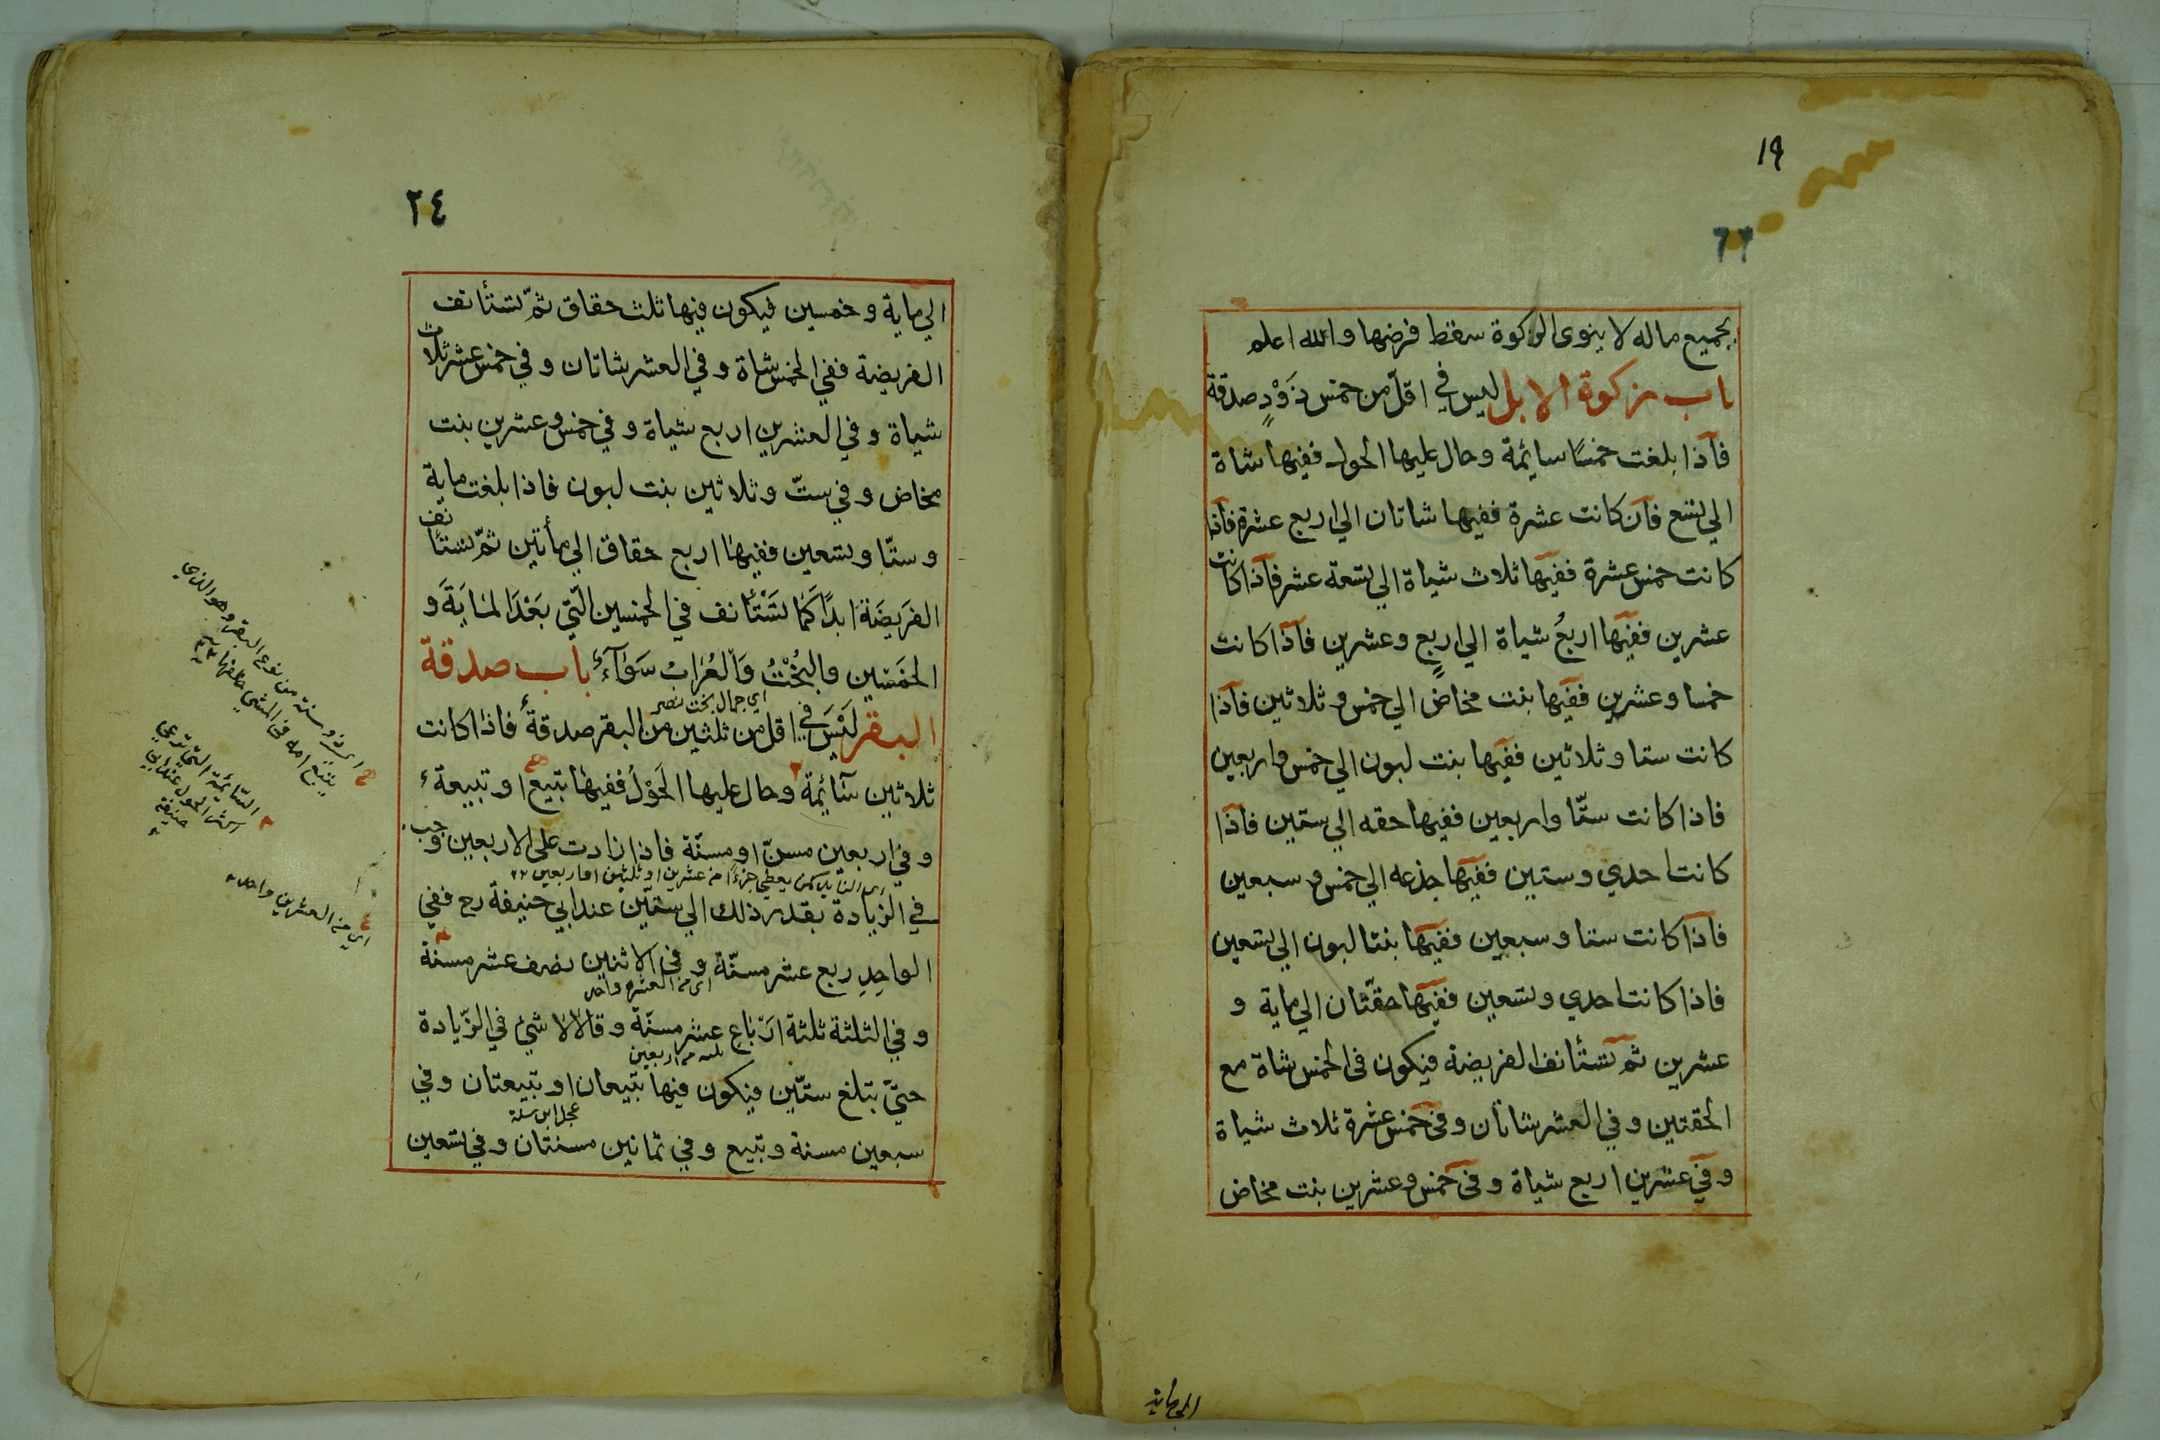 ١٩
٦٦
بجميع ماله لا ينوى الزكوة سقط فرضها والله اعلم
باب زكوة الابل ليس في اقل من خمس ذَوْدٍ صدقة
فاذا بلغت خمسًا سائمة وحال عليها الحول ففيها شاة
الي تسع فان كانت عشرة ففيها شاتان الي اربع عشرة فاذا
كانت خمس عشرة ففيها ثلاث شياة الي تسعة عشر فاذا كانت
عشرين ففيها اربعُ شياة الي اربعٍ وعشرين فاذا كانت
خمسا وعشرين ففيها بنت مخاض الي خمس وثلاثين فاذا
كانت ستا وثلاثين ففيها بنت لبون الي خمس واربعين
فاذا كانت ستّا واربعين ففيها حقه الي ستين فاذا
كانت احدي وستين ففيها جذعه الي خمس وسبعين
فاذا كانت ستا وسبعين ففيها بنتا لبون الي تسعين
فاذا كانت احدي وتسعين ففيها حقّتان الي ماية و
عشرين ثم تستأنف الفريضة فيكون في الخمس شاة مع
الحقتين وفي العشر شاتان وفي خمس عشرة ثلاث شياة
وفي عشرين اربع شياة وفي خمس وعشرين بنت مخاض
الي ماية
٢٤
الي ماية وخمسين فيكون فيها ثلث حقاق ثمّ تستأنف
الفريضة ففي الخمس شاة وفي العشر شاتان وفي خمس عشر ثلاث
شياة وفي العشرين اربع شياة وفي خمس وعشرين بنت
مخاض وفي ستّ وثلاثين بنت لبون فاذا بلغت ماية
وستّا وتسعين ففيها اربع حقاق الي مأتين ثمّ تستأنف
الفَريضَةَ ابدًا كَمَا تَسْتَأنف في الخمسين الّتي بَعْدَ المايَةَ و
الخَمَسِين والبُخْتُ وَالْعُرَابُ سَوَآءٌ باب صدقة
اي جمال بخت نصر
البقر لَيْسَ في اقل من ثلثين من البقر صدقةٌ فاذا كانت
ثلاثين سَآئِمَةً وحال عليها الحَوْلُ ففيها تبيع او تبيعة
وفي اربعين مسنّ او مسنّة فاذا زادت على الاربعين وجب
اي الزايد كمن يعطي جزءًا من عشرين او ثلثين او اربعين
في الزيادة بقدر ذلك الي ستّين عند ابي حنيفة رح ففي
الواحِدِ ربع عشر مسنّة وفي الاثنين نصف عشر مسنة
اي من العشرين واحد
وفي الثلثة ثلثة ارْبَاع عشر مسنّة وقالا لا شيْ في الزّيادة
ثلثه من اربعين
حتّي تبلغ ستّين فيكون فيها تبيعان او تبيعتان وفي
عجل ابن سنة
سبعين مسنة وتبيع وفي ثمانين مسنتان وفي تسعين
اي ذو سنة من نوع البقر وهو الذي
يتبع امه في المشي
السّائمة التي ترعي
اكثر الحول عند ابي
حنيفة
اي من العشرين واحد